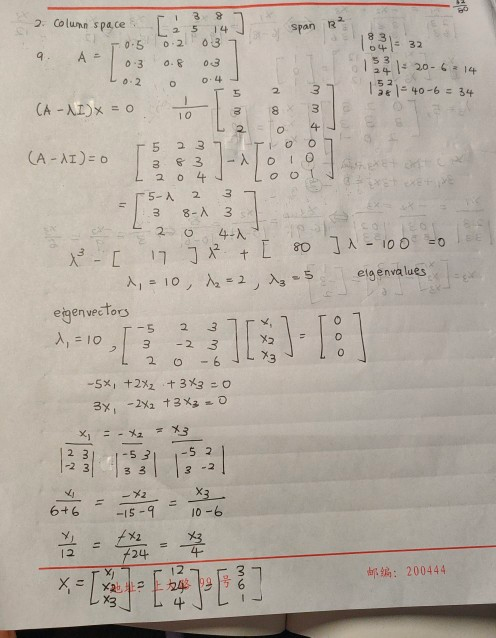 2. Column space [1 3 8; 2 5 14] span R²
|8 3; 0 4| = 32
|5 3; 2 4| = 20-6 = 14
|5 2; 3 8| = 40-6 = 34
9. A = [0.5 0.2 0.3; 0.3 0.8 0.3; 0.2 0 0.4]
(A - λI)x = 0 1/10 [5 2 3; 3 8 3; 2 0 4]
(A - λI) = 0 [5 2 3; 3 8 3; 2 0 4] - λ [1 0 0; 0 1 0; 0 0 1]
= [5-λ 2 3; 3 8-λ 3; 2 0 4-λ]
λ³ - [ 17 ] λ² + [ 80 ] λ - 100 = 0
λ₁ = 10 , λ₂ = 2 , λ₃ = 5 eigenvalues
eigenvectors
λ₁ = 10 , [-5 2 3; 3 -2 3; 2 0 -6] [x₁; x₂; x₃] = [0; 0; 0]
-5x₁ + 2x₂ + 3x₃ = 0
3x₁ - 2x₂ + 3x₃ = 0
x₁ / |2 3; -2 3| = -x₂ / |-5 3; 3 3| = x₃ / |-5 2; 3 -2|
x₁/6+6 = -x₂/-15-9 = x₃/10-6
x₁/12 = -x₂/-24 = x₃/4
X₁ = [x₁; x₂; x₃] = [12; 24; 4] = [3; 6; 1]
地址: 上大路 99 号
邮编: 200444